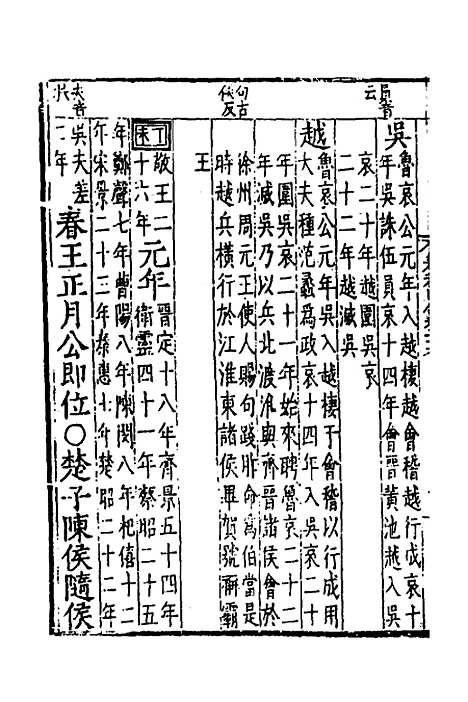 員音云
句古侯反
夫音扶
吳魯哀公元年入越棲越會稽越行成哀十
年吳誅伍員哀十四年會晉黃池越入吳
哀二十年越圍吳哀
二十二年越滅吳
越魯哀公元年吳入越棲于會稽以行成用
大夫種范蠡為政哀十四年入吳哀二十
年圍吳哀二十一年始來聘魯哀二十二
年滅吳乃以兵北渡淮與齊晉諸侯會於
徐州周元王使人賜句踐胙命為伯當是
時越兵橫行於江淮東諸侯畢賀號稱霸
王
丁未敬王二十六年元年晉定十八年齊景五十四年衛靈四十一年蔡昭二十五
年鄭聲七年曹陽八年陳閔八年杞僖十二
年宋景二十三年秦惠七年楚昭二十二年
吳夫差二年春王正月公即位○楚子陳侯隨侯